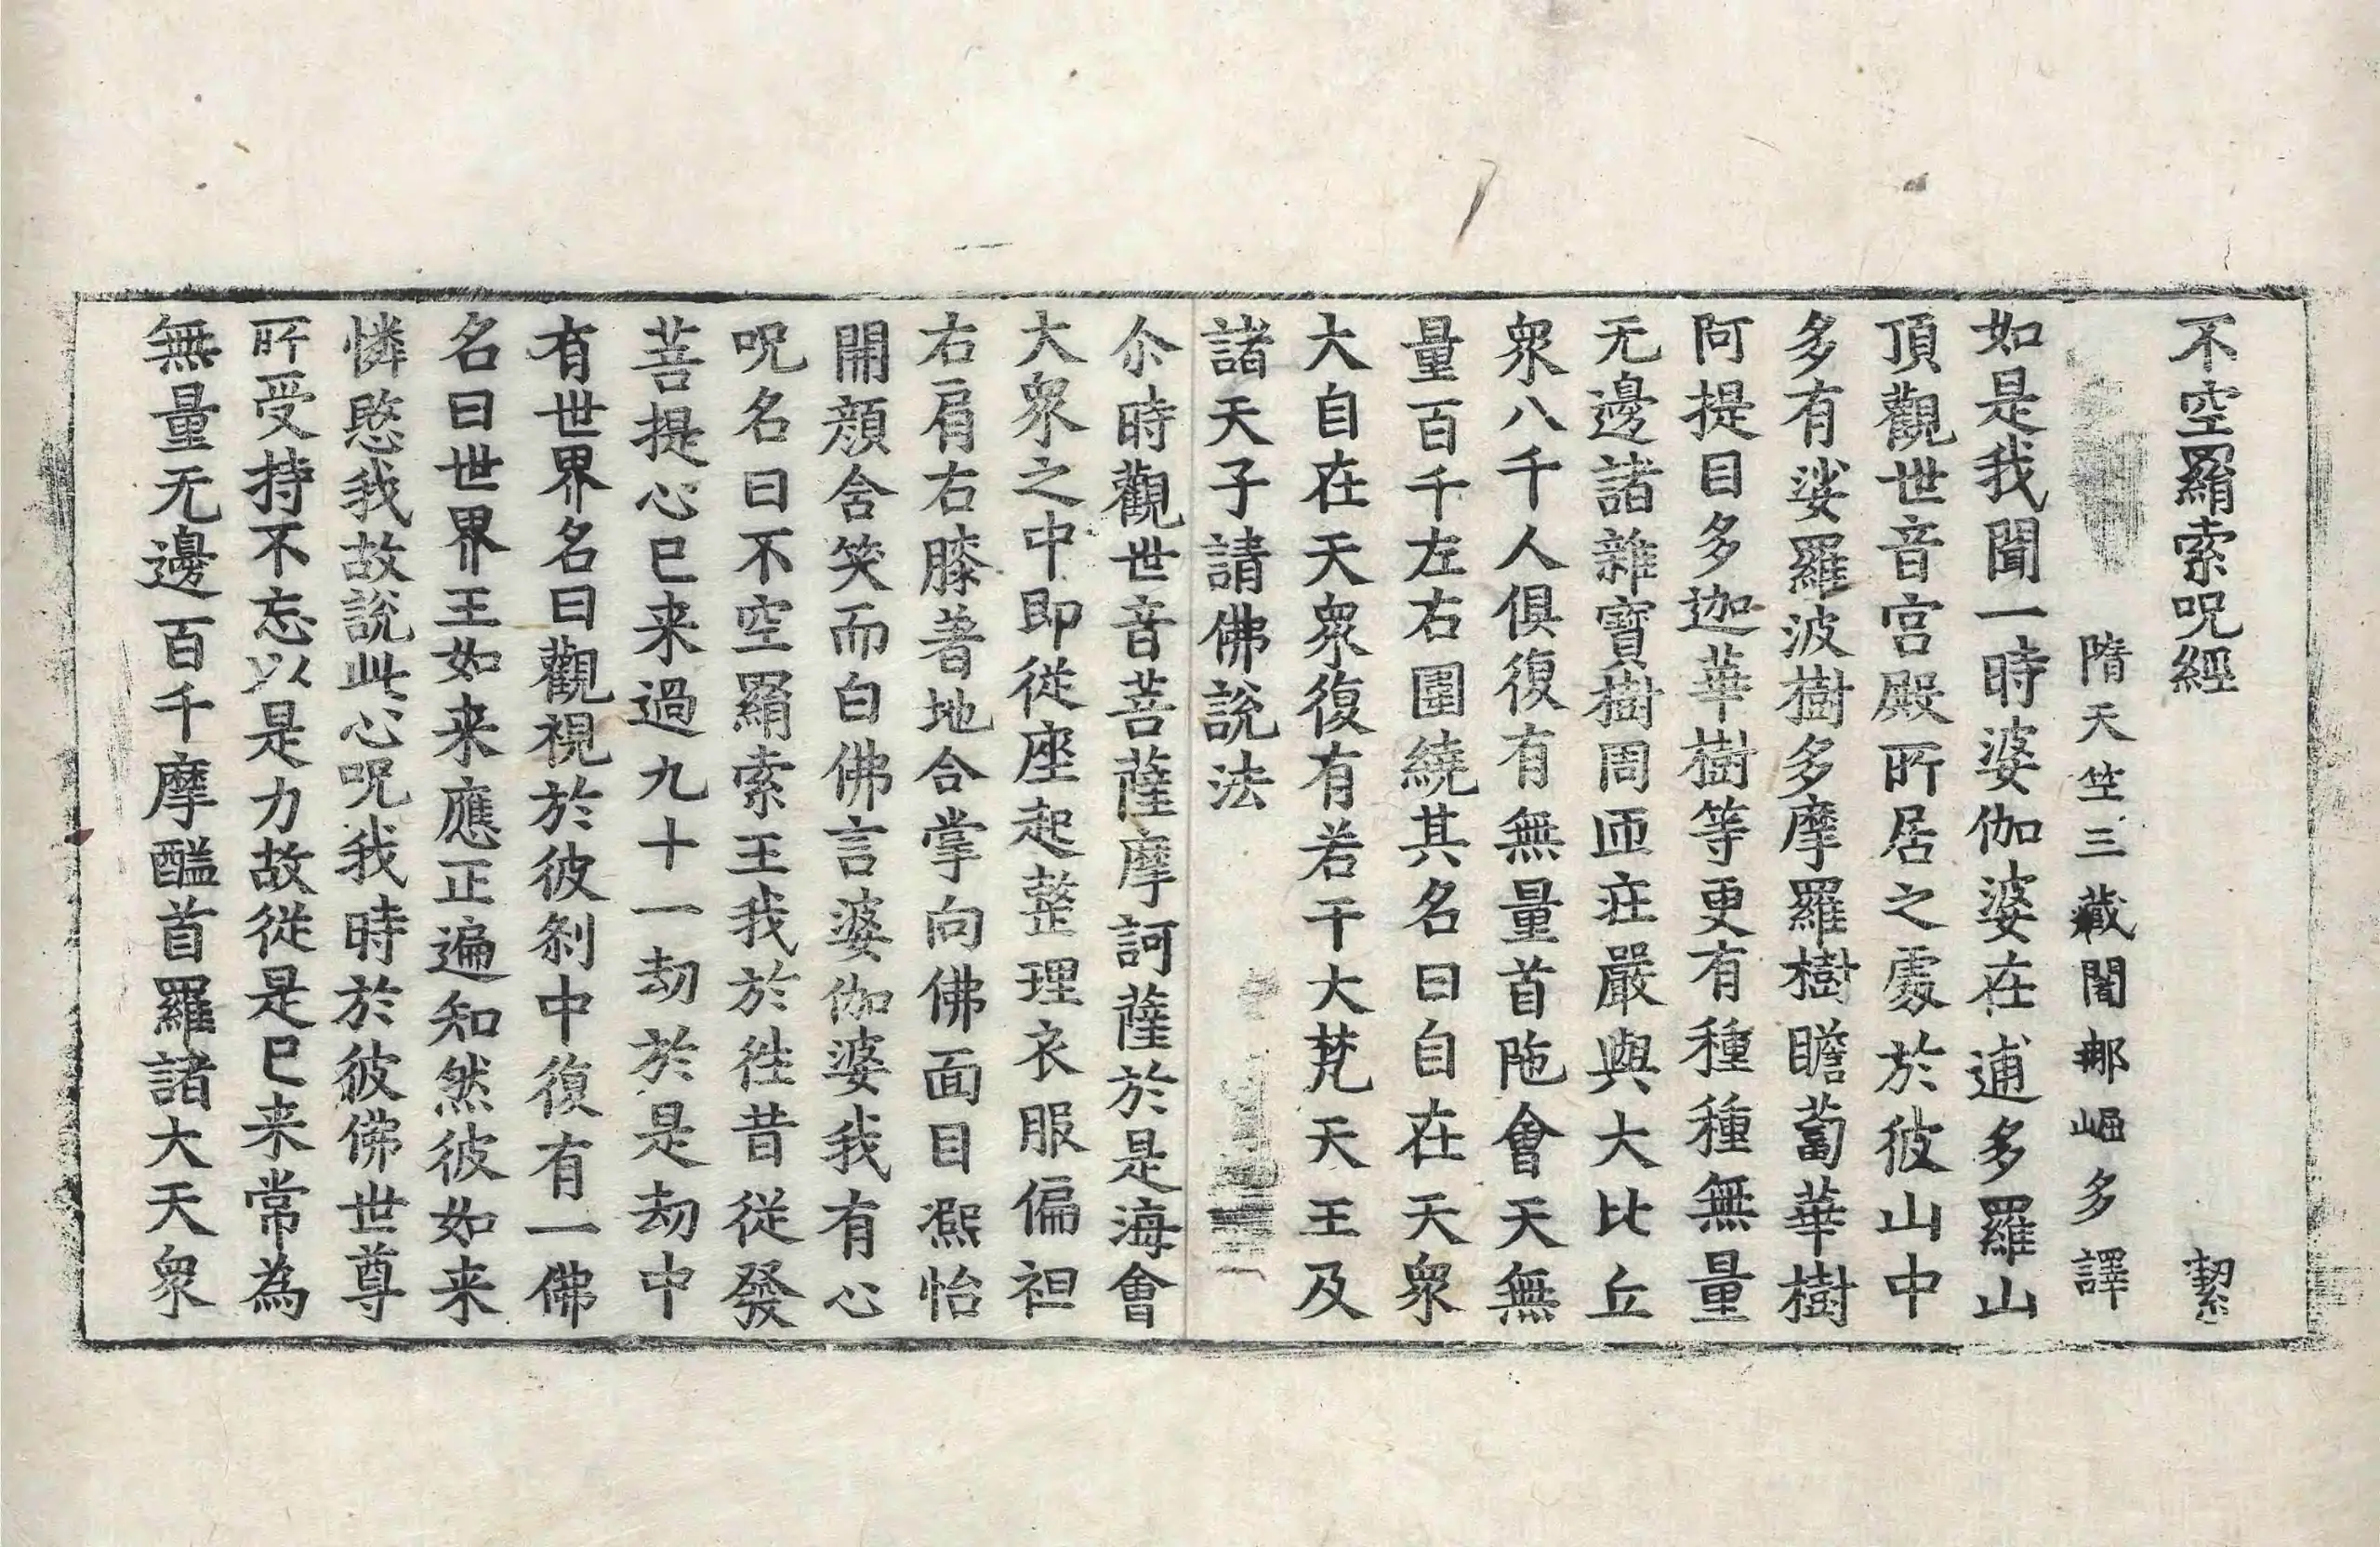 不空羂索呪經　絜
隋天竺三藏闍那崛多譯
如是我聞一時婆伽婆在逋多羅山
頂觀世音宮殿所居之處於彼山中
多有娑羅波樹多摩羅樹瞻蔔華樹
阿提目多迦華樹等更有種種無量
无邊諸雜寶樹周匝莊嚴與大比丘
衆八千人俱復有無量首陁會天無
量百千左右圍繞其名曰自在天衆
大自在天衆復有若干大梵天王及
諸天子請佛說法
尒時觀世音菩薩摩訶薩於是海會
大衆之中即從座起整理衣服偏袒
右肩右膝著地合掌向佛面目熈怡
開顔舍笑而白佛言婆伽婆我有心
呪名曰不空羂索王我於往昔從發
菩提心已来過九十一劫於是劫中
有世界名曰觀視於彼刹中復有一佛
名曰世界王如来應正遍知然彼如来
憐愍我故說此心呪我時於彼佛世尊
所受持不忘以是力故從是已来常為
無量无邊百千摩醯首羅諸大天衆